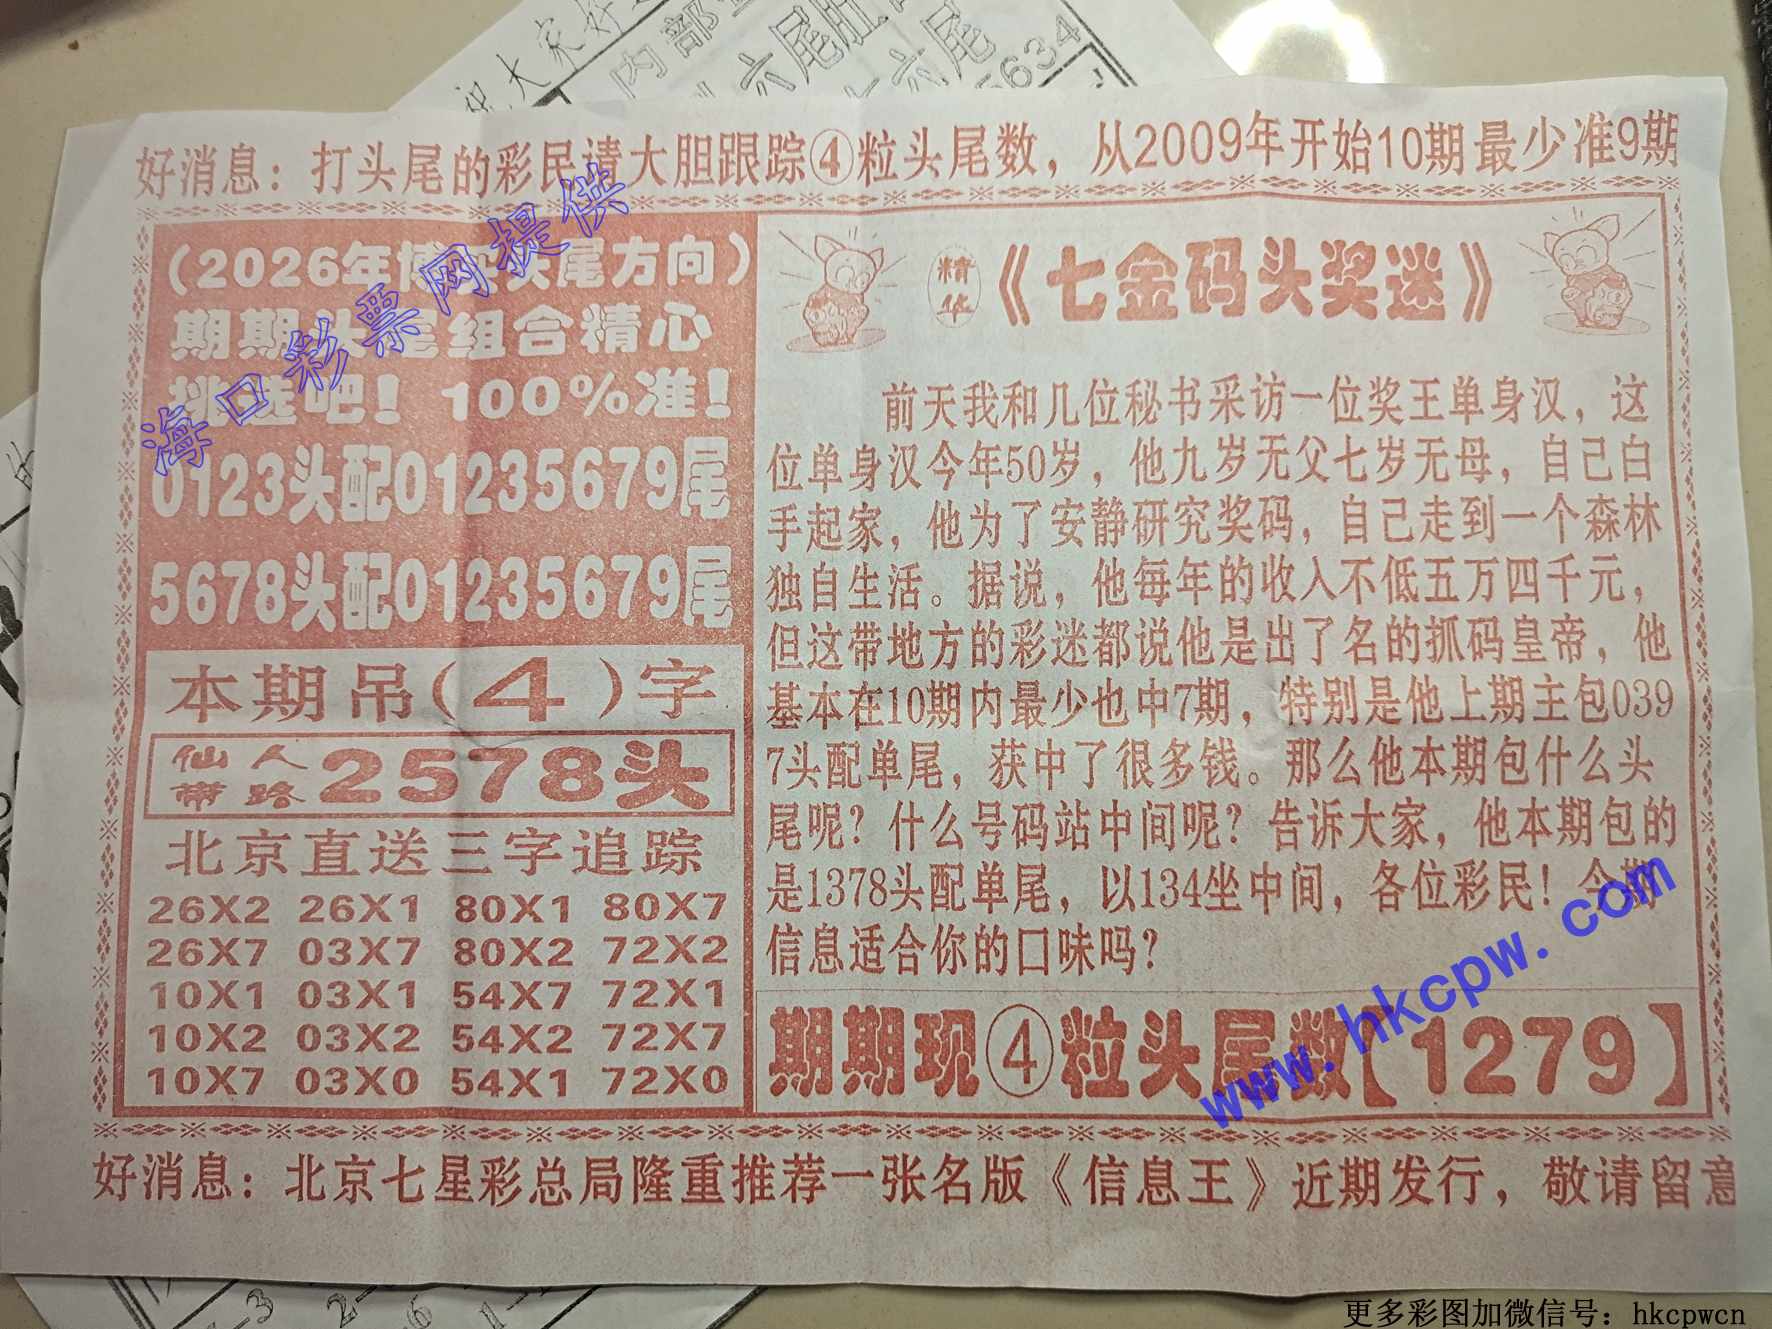 祝大家好
内部
六尾肚
六尾
5634
好消息：打头尾的彩民请大胆跟踪④粒头尾数，从2009年开始10期最少准9期
（2026年博彩头尾方向）
期期头尾组合精心
挑选吧！100%准！
0123头配01235679尾
5678头配01235679尾
本期吊（4）字
仙人带路 2578头
北京直送三字追踪
26X2 26X1 80X1 80X7
26X7 03X7 80X2 72X2
10X1 03X1 54X7 72X1
10X2 03X2 54X2 72X7
10X7 03X0 54X1 72X0
精华《七金码头奖迷》
前天我和几位秘书采访一位奖王单身汉，这
位单身汉今年50岁，他九岁无父七岁无母，自己白
手起家，他为了安静研究奖码，自己走到一个森林
独自生活。据说，他每年的收入不低五万四千元，
但这带地方的彩迷都说他是出了名的抓码皇帝，他
基本在10期内最少也中7期，特别是他上期主包039
7头配单尾，获中了很多钱。那么他本期包什么头
尾呢？什么号码站中间呢？告诉大家，他本期包的
是1378头配单尾，以134坐中间，各位彩民！今期
信息适合你的口味吗？
期期现④粒头尾数【1279】
好消息：北京七星彩总局隆重推荐一张名版《信息王》近期发行，敬请留意
海口彩票网提供
www.hkcpw.com
更多彩图加微信号：hkcpwcn